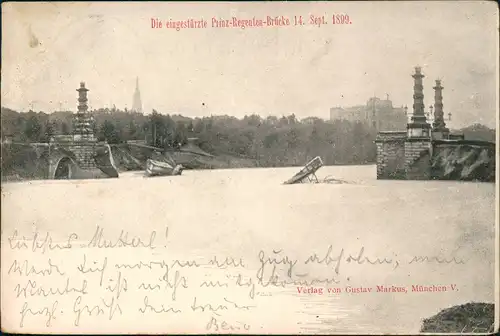 Die eingestürzte Prinz-Regenten-Brücke 14. Sept. 1899.
Liebstes Mutterl!
Werde Dich morgen am Zug abholen; mein
Mantel ist nicht
herzl. Grüße dein treuer
Verlag von Gustav Markus, München V.